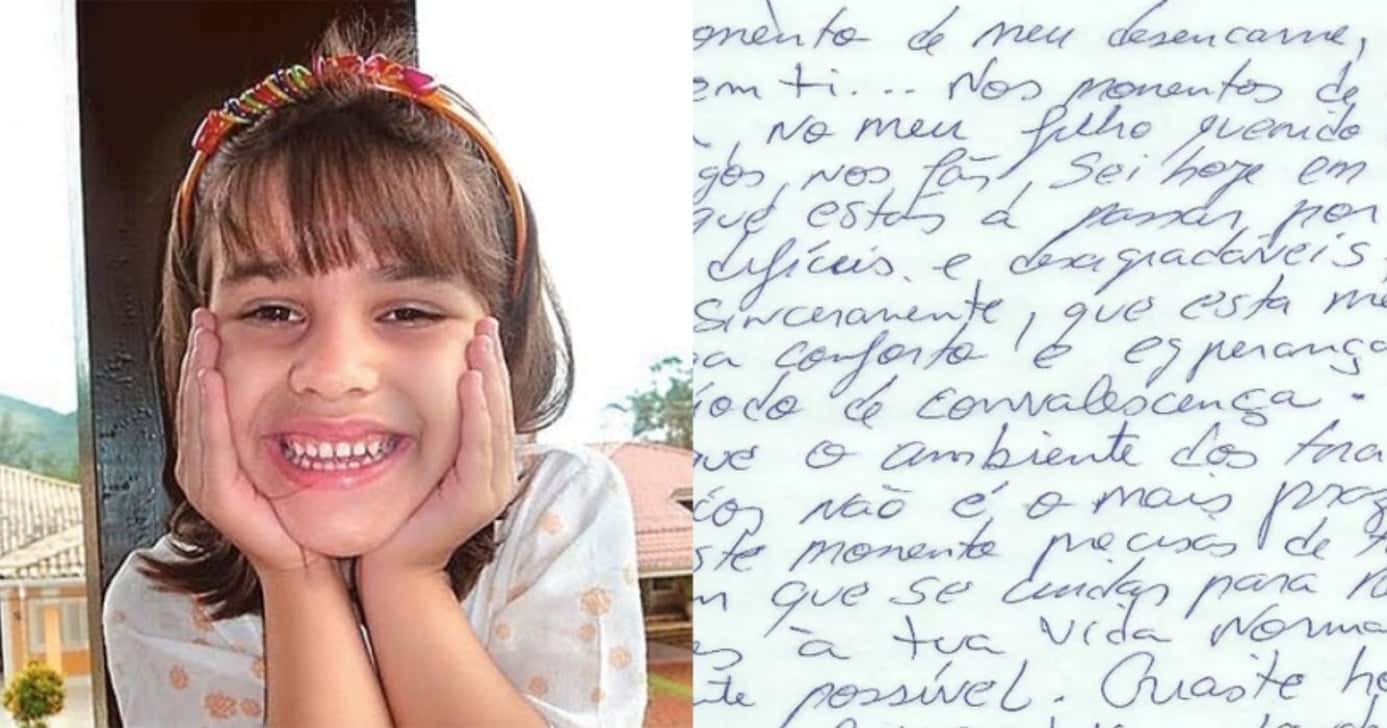 omento de meu desencarne,
em ti... Nos momentos de
, No meu filho querido
gos, nos fãs, Sei hoje em
que estás à passar por
difíceis. e desagradáveis,
Sinceramente, que esta me
a conforto e esperança
íodo de convalescença.
ue o ambiente dos
cos não é o mais praz
ste momento precisas de
m que se cuidas para
es à tua vida Norma
nte possível. Criaste ho